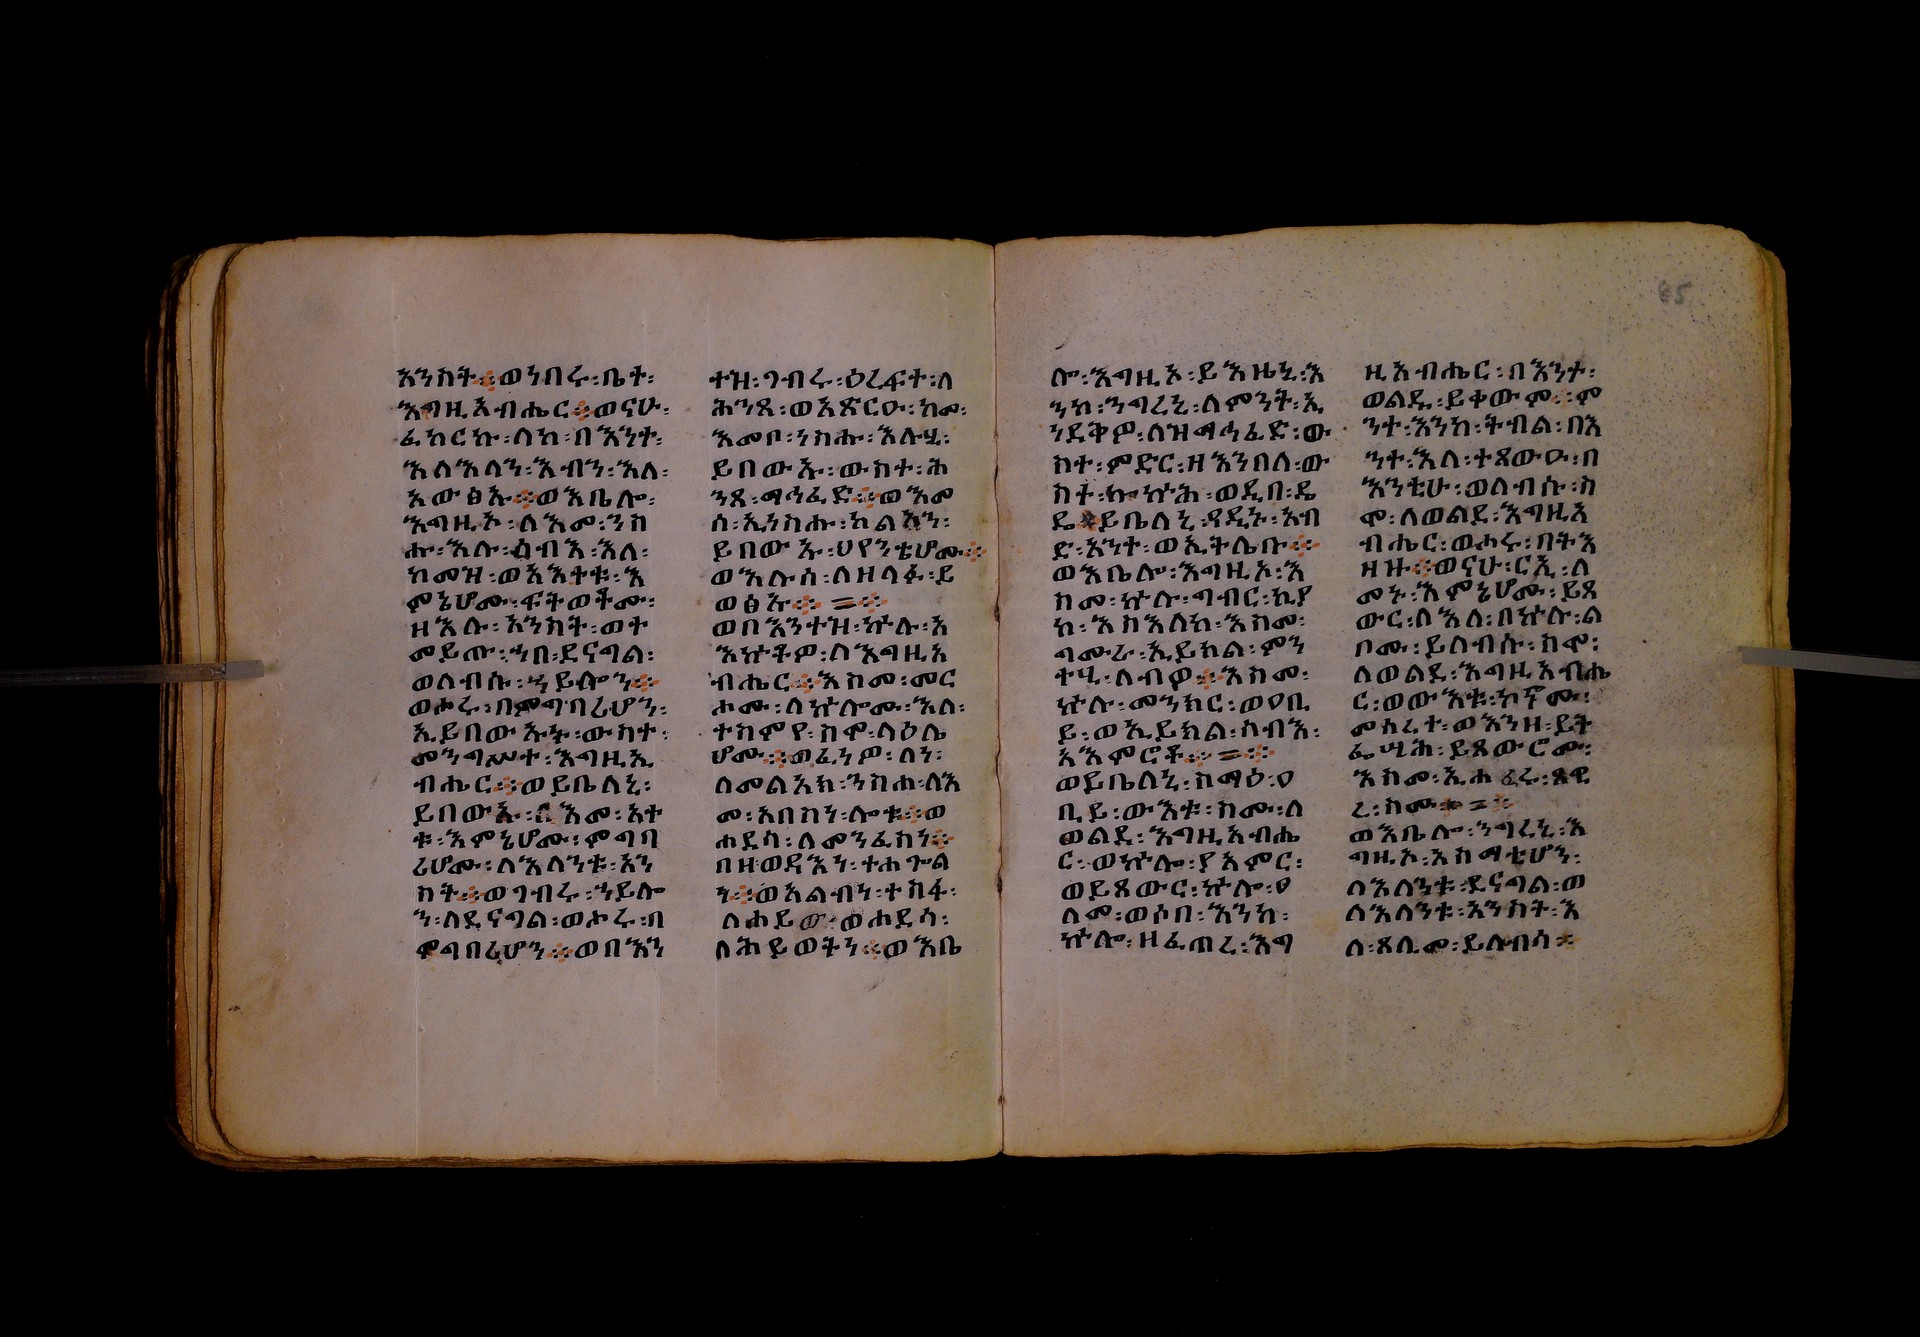 አንስት፡፡ወነበሩ፡ቤተ፡
እግዚአብሔር፡፡ወናሁ፡
ፈከርኩ፡ለከ፡በእንተ፡
እለአለን፡እብን፡እለ፡
አውፅኡ፡፡ወእቤሎ፡
እግዚኦ፡ለእመ፡ንስ
ሑ፡እሉ፡ሰብእ፡እለ፡
ከመዝ፡ወአእተቱ፡እ
ምኔሆሙ፡ፍትወቶሙ፡
ዘእሉ፡አንስት፡ወተ
መይጡ፡ኀበ፡ደናግል፡
ወለብሱ፡ኃይሎን፡፡
ወሖሩ፡በምግባሪሆን፡
ኢይበውኡኑ፡ውስተ፡
መንግሥተ፡እግዚአ
ብሔር፡፡ወይቤለኒ፡
ይበውኡ፡ለእመ፡አተ
ቱ፡እምኔሆሙ፡ምግባ
ሪሆሙ፡ለእለንቱ፡አን
ስት፡፡ወገብሩ፡ኀይሎ
ን፡ለደናግል፡ወሖሩ፡በ
ምግባሪሆን፡፡ወበእን
ተዝ፡ገብሩ፡ዕረፍተ፡ለ
ሕንጻ፡ወአጽርዑ፡ከመ፡
እመቦ፡ነስሑ፡እሉሂ፡
ይበውኡ፡ውስተ፡ሕ
ንጻ፡ማኅፈድ፡፡ወእመ
ሰ፡ኢነስሑ፡ካልአን፡
ይበውኡ፡ህየንቴሆሙ፡፡
ወእሉሰ፡ለዘላፉ፡ይ
ወፅኡ፡፡ ፡፡
ወበእንተዝ፡ኵሉ፡አ
እኰቶዎ፡ለእግዚአ
ብሔር፡፡እስመ፡መር
ሐሙ፡ለኵሎሙ፡እለ፡
ተሰምየ፡ስሞ፡ላዕሌ
ሆሙ፡፡ወፈነዎ፡ለነ፡
ለመልአክ፡ንስሐ፡ለእ
መ፡አበስነ፡ሎቱ፡፡ወ
ሐደሳ፡ለመንፈስነ፡፡
በዘወዳእነ፡ተሐጕል
ነ፡፡ወአልብነ፡ተስፋ፡
ለሐይው፡ወሐደሳ፡
ለሕይወትነ፡፡ወእቤ
ሎ፡እግዚኦ፡ይእዜኒ፡እ
ንከ፡ንግረኒ፡ለምንት፡ኢ
ነደቅዎ፡ለዝማኅፈድ፡ው
ስተ፡ምድር፡ዘእንበለ፡ው
ስተ፡ኰኵሕ፡ወዲበ፡ዴ
ዴ፡፡ይቤለኒ፡ዓዲኑ፡አብ
ድ፡አንተ፡ወኢትሌቡ፡፡
ወእቤሎ፡እግዚኦ፡እ
ስመ፡ኵሉ፡ግብር፡ኪያ
ከ፡እስእለከ፡እስመ፡
ግሙራ፡ኢይክል፡ምን
ተሂ፡ለብዎ፡፡እስመ፡
ኵሉ፡መንክር፡ወዐቢ
ይ፡ወኢይክል፡ሰብእ፡
አእምሮቶ፡፡ ፡፡
ወይቤለኒ፡ስማዕ፡ዐ
ቢይ፡ውእቱ፡ስሙ፡ለ
ወልደ፡እግዚአብሔ
ር፡ወኵሎ፡ያአምር፡
ወይጸውር፡ኵሎ፡ዐ
ለመ፡ወሶበ፡እንከ፡
ኵሎ፡ዘፈጠረ፡እግ
ዚአብሔር፡በእንተ፡
ወልዱ፡ይቀውም፡፡ም
ንተ፡እንከ፡ትብል፡በእ
ንተ፡እለ፡ተጸውዑ፡በ
እንቲሁ፡ወለብሱ፡ስ
ሞ፡ለወልደ፡እግዚአ
ብሔር፡ወሖሩ፡በትእ
ዛዙ፡፡ወናሁ፡ርኢ፡ለ
መኑ፡እምኔሆሙ፡ይጸ
ውር፡ለእለ፡በኵሉ፡ል
ቦሙ፡ይለብሱ፡ስሞ፡
ለወልደ፡እግዚአብሔ
ር፡ወውእቱ፡ኮኖሙ፡
መሰረተ፡ወእንዘ፡ይት
ፌሣሕ፡ይጸውሮሙ፡
እስመ፡ኢሐፈሩ፡ጸዊ
ረ፡ስሙ፡፡ ፡፡
ወእቤሎ፡ንግረኒ፡እ
ግዚኦ፡አስማቲሆን፡
ለእለንቱ፡ደናግል፡ወ
ለእለንቱ፡አንስት፡እ
ለ፡ጸሊመ፡ይለብሳ፡፡